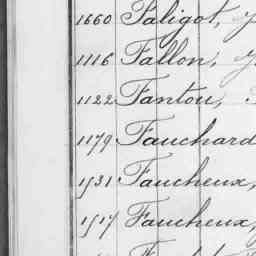 1660 Faligot,
1116 Fallon,
1122 Fantou,
1179 Fauchard
1531 Faucheux,
1517 Faucheux,